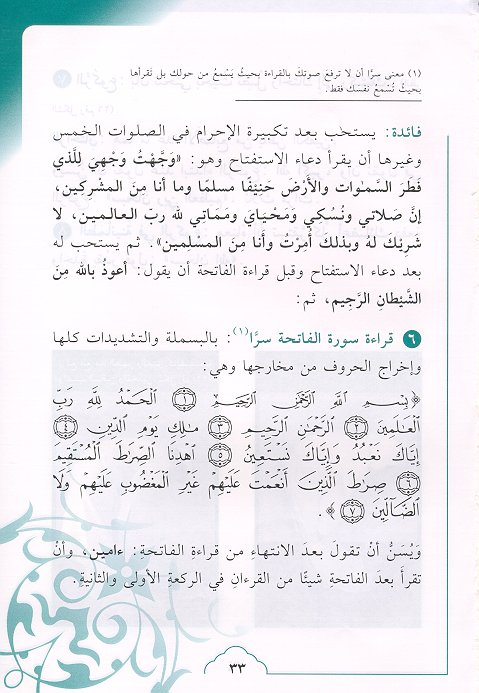 (١) معنى سرًّا أن لا ترفعَ صوتكَ بالقراءة بحيثُ يَسْمعُ من حولك بل تَقرأها
بحيثُ تُسْمعُ نفسَك فقط.
فائدة: يستحب بعد تكبيرة الإحرام في الصلوات الخمس
وغيرها أن يقرأ دعاء الاستفتاح وهو: «وَجَّهْتُ وَجْهِيَ لِلَّذي
فَطَرَ السَّمَـٰوات والأَرْضَ حَنِيفًا مسلمًا وما أنا مِنَ المشْرِكِين،
إنَّ صَلاتي ونُسُكِي وَمَحْيَايَ وَمَمَاتِي لله ربّ العـالـمـين، لا
شَرِيْكَ لهُ وبذلكَ أُمِرْتُ وأَنا مِنَ المسْلِمين». ثم يستحب له
بعد دعاء الاستفتاح وقبل قراءة الفاتحة أن يقول: أعوذُ بالله مِنَ
الشَّيْطانِ الرَّجيم، ثم:
٦ قراءة سورة الفاتحة سرًّا(١): بالبسملة والتشديدات كلها
وإخراج الحروف من مخارجها وهي:
﴿بِسْمِ ٱللَّهِ ٱلرَّحْمَٰنِ ٱلرَّحِيمِ ١ ٱلْحَمْدُ لِلَّهِ رَبِّ
ٱلْعَٰلَمِينَ ٢ ٱلرَّحْمَٰنِ ٱلرَّحِيمِ ٣ مَٰلِكِ يَوْمِ ٱلدِّينِ ٤
إِيَّاكَ نَعْبُدُ وَإِيَّاكَ نَسْتَعِينُ ٥ ٱهْدِنَا ٱلصِّرَٰطَ ٱلْمُسْتَقِيمَ
٦ صِرَٰطَ ٱلَّذِينَ أَنْعَمْتَ عَلَيْهِمْ غَيْرِ ٱلْمَغْضُوبِ عَلَيْهِمْ وَلَا
ٱلضَّآلِّينَ ٧﴾.
وَيُسَنُّ أنْ تقولَ بعدَ الانتهاءِ من قراءةِ الفاتحةِ: ءامين، وأنْ
تقرأَ بعدَ الفاتحةِ شيئًا من القرءانِ في الركعةِ الأولى والثانيةِ.
٣٣